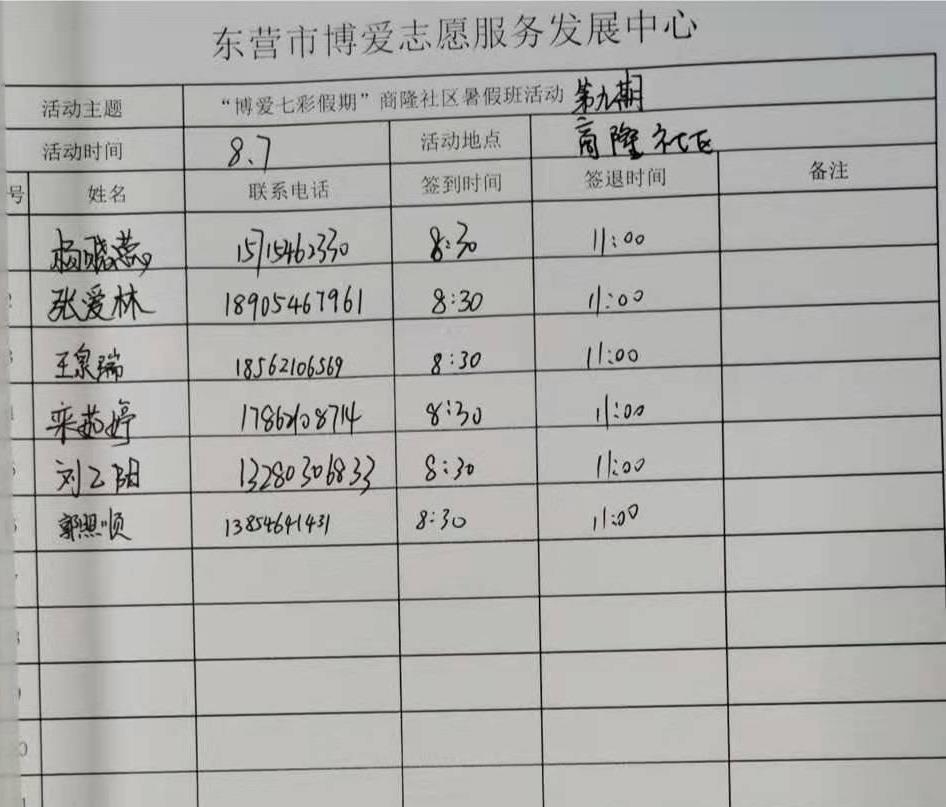 东营市博爱志愿服务发展中心
活动主题 “博爱七彩假期”商隆社区暑假班活动 第九期
活动时间 8.7 活动地点 商隆社区
号 姓名 联系电话 签到时间 签退时间 备注
杨晓燕 15715462330 8:30 11:00
2 张爱林 18905467961 8:30 11:00
3 王泉瑞 18562106569 8:30 11:00
栾茹婷 8:30 11:00
刘乙阳 13280306833 8:30 11:00
郭照顺 13854641431 8:30 11:00